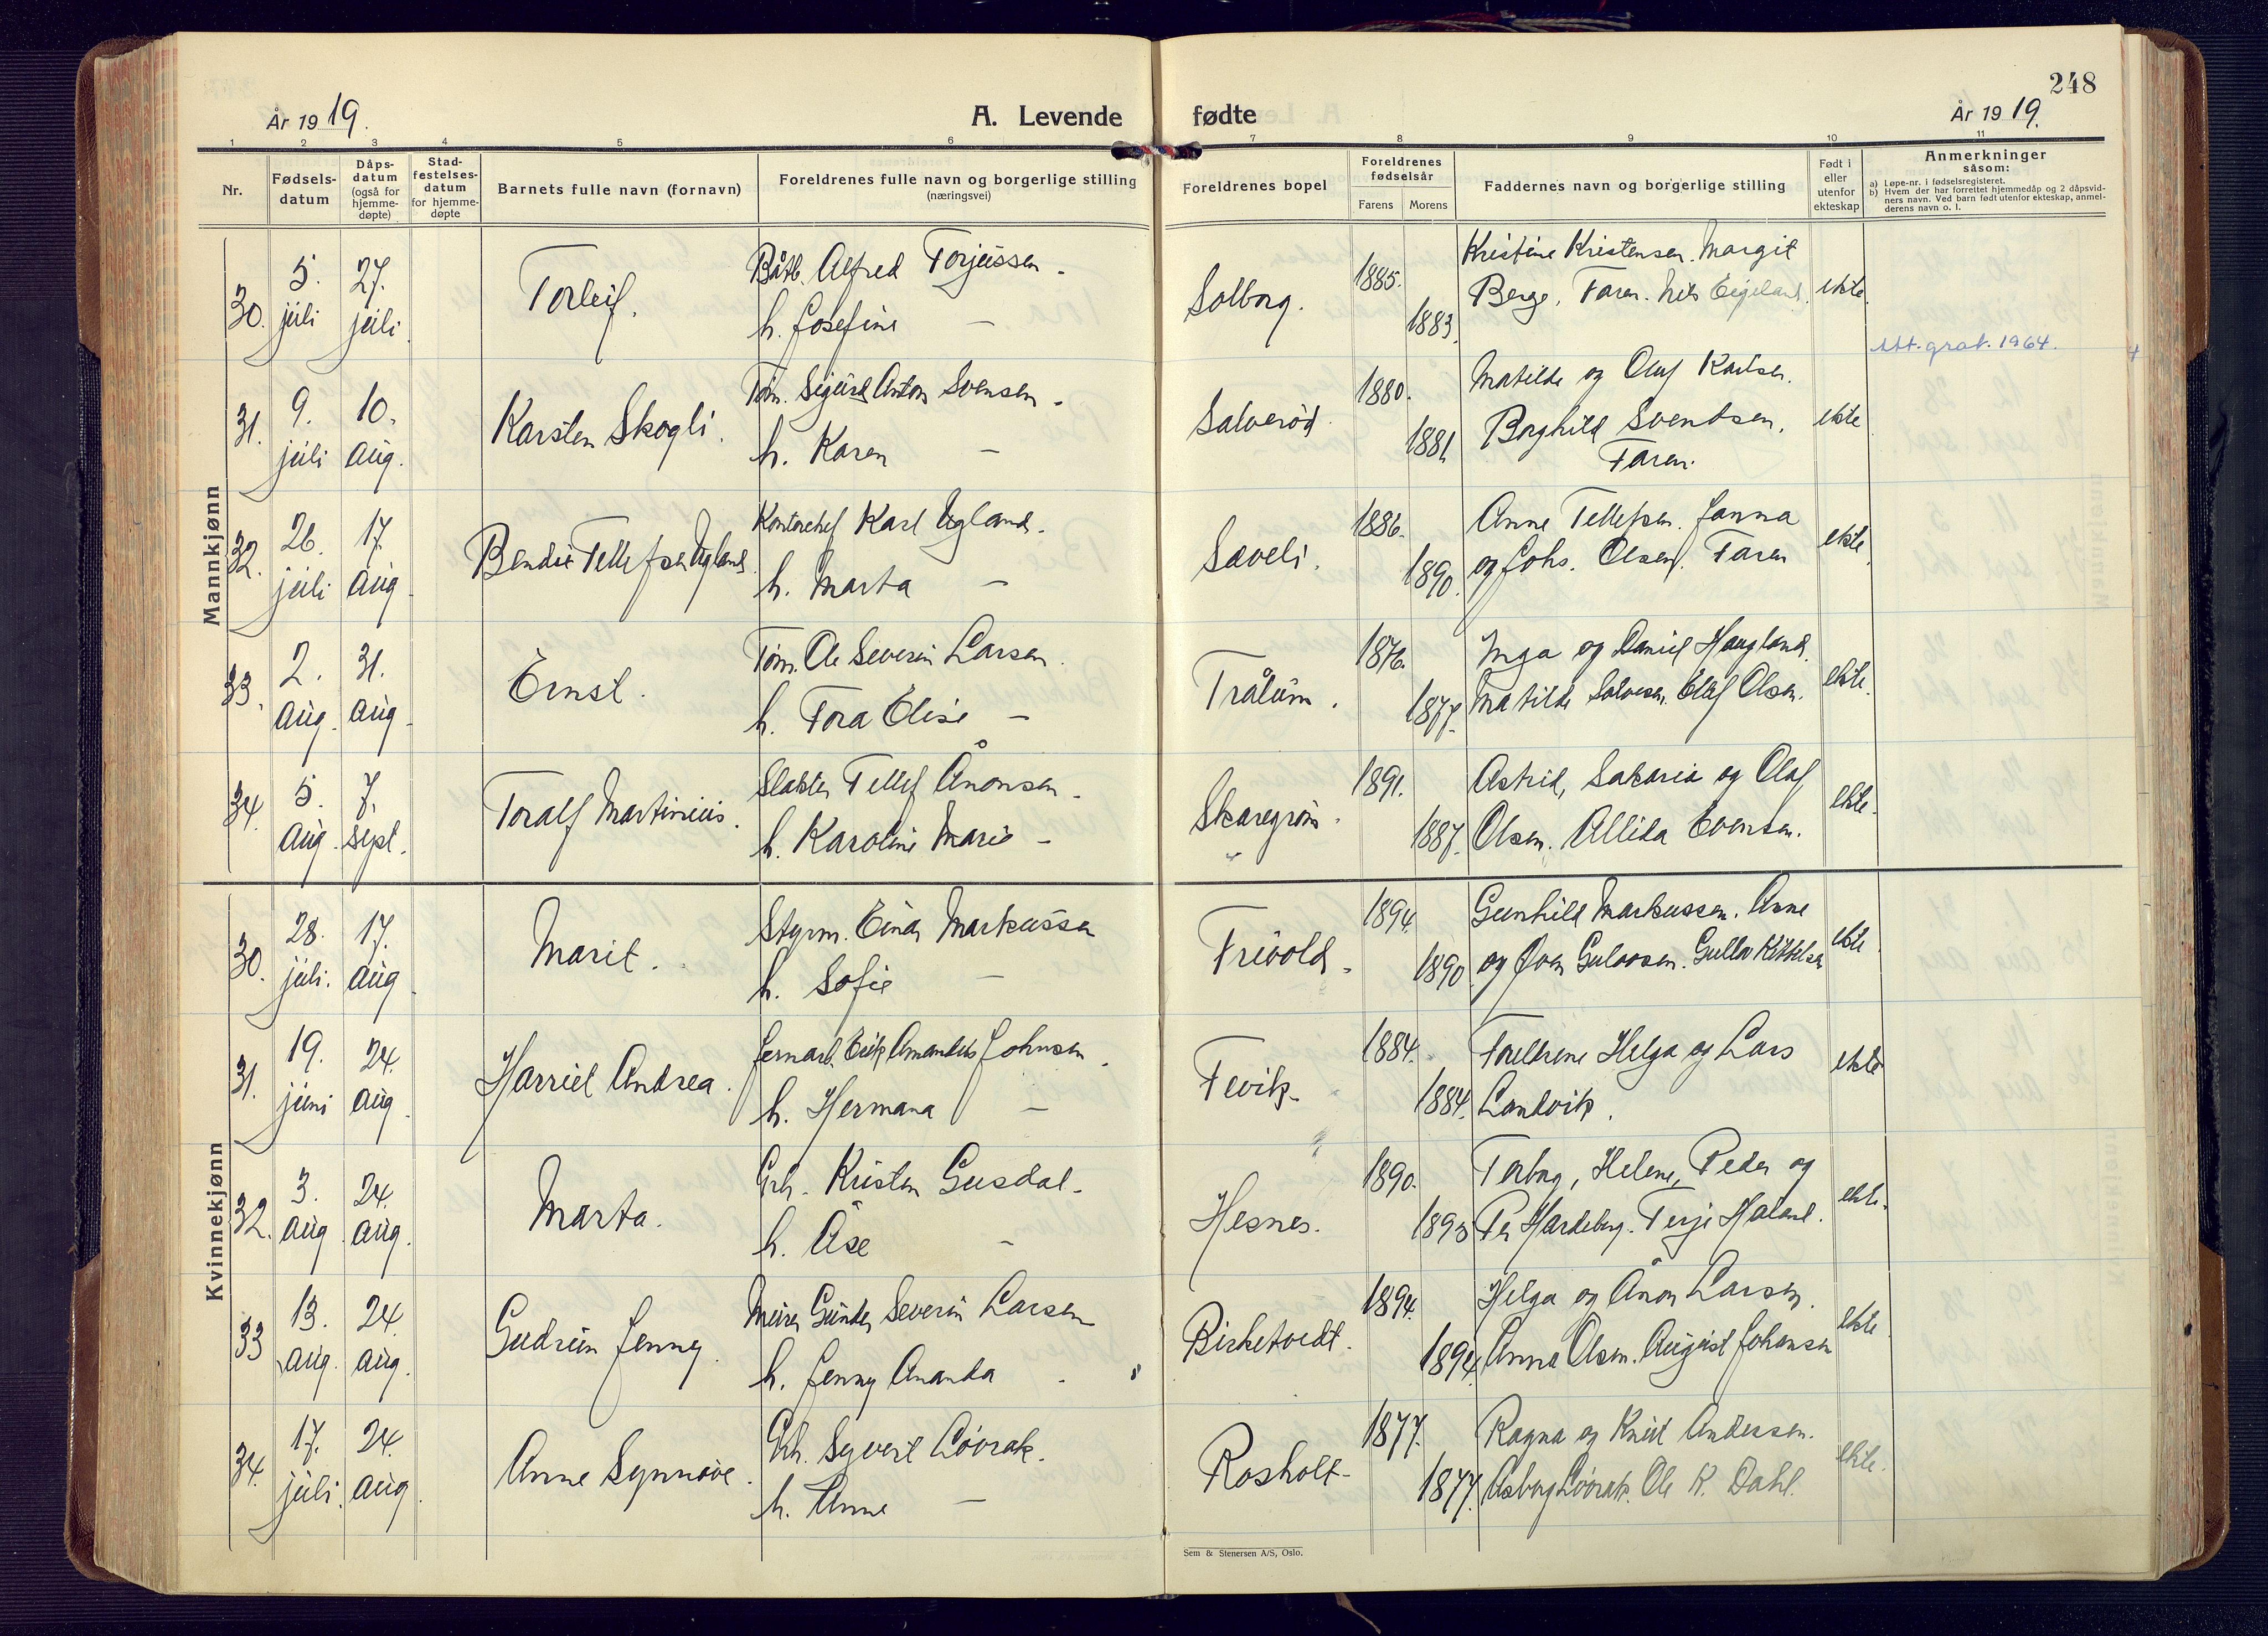 248
År 1919.
A. Levende fødte
År 1919.
1 2 3 4 5 6 7 8 9 10 11
Nr.
Fødsels-
datum
Dåps-
datum
(også for
hjemme-
døpte)
Stad-
festelses-
datum
for hjemme-
døpte
Barnets fulle navn (fornavn)
Foreldrenes fulle navn og borgerlige stilling
(næringsvei)
Foreldrenes bopel
Foreldrenes
fødselsår
Farens Morens
Faddernes navn og borgerlige stilling
Født i
eller
utenfor
ekteskap
Anmerkninger
såsom:
a) Løpe-nr. i fødselsregisteret.
b) Hvem der har forrettet hjemmedåp og 2 dåpsvid-
ners navn. Ved barn født utenfor ekteskap, anmel-
derens navn o. l.
Mannkjønn
30. 5. juli 27. juli Torleif.
Båtb. Alfred Torjussen -
h. Josefine -
Solborg. 1885. 1883.
Kristine Kristensen. Margit
Berge. Faren. Nils Eigeland.
ekte.
Att. grat. 1964.
31. 9. juli 10. aug. Karsten Skogli.
Tøm. Sigurd Anton Svensen -
h. Karen -
Salverød. 1880. 1881.
Matilde og Oluf Karlsen.
Borghild Svendsen.
Faren.
ekte
32. 26. juli 17. aug. Bendix Tellefsen Ugland.
Kontorchef Karl Ugland -
h. Marta -
Sæveli. 1886. 1890.
Anne Tellefsen. Janna
og Johs. Olsen. Faren
ekte.
33. 2. aug. 31. aug. Ernst.
Tøm. Ole Severin Larsen.
h. Tora Elise -
Trålum. 1876. 1877.
Inga og Daniel Haugland.
Matilde Salvesen. Elef Olsen.
ekte.
34. 5. aug. 7. sept. Toralf Martinius.
Slakter Tellef Ånonsen -
h. Karoline Marie -
Skaregrøm. 1891. 1887.
Astrid, Sakaria og Olaf
Olsen. Allida Evensen.
ekte.
Kvinnekjønn
30. 28. juli. 17. aug. Marit.
Styrm. Einar Markussen
h. Sofie -
Frivold. 1894. 1890
Gunhild Markussen. Anne
og Øven Gulovsen. Gullov Kittelsen
ekte.
31. 19. juni 24. aug. Harriet Andrea.
Jernarb. Erik Amandus Johnsen.
h. Hermana -
Fevik. 1884. 1884.
Foreldrene Helga og Lars
Landvik.
ekte
32. 3. aug. 24. aug. Marta.
Grb. Kristen Gusdal -
h. Åse -
Hesnes. 1890. 1893
Torborg, Helene, Peder og
Per Hardeberg. Terje Haland.
ekte.
33 13. aug. 24. aug. Gudrun Jenny.
Murer Gunder Severin Larsen
h. Jenny Amanda -
Birketvedt. 1894. 1894.
Helga og Ånon Larsen.
Anna Olsen. August Johansen
ekte.
34. 17. juli. 24. aug. Anne Synnøve.
Grb. Syvert Løvrak.
h. Anne -
Rosholt. 1877. 1877.
Ragna og Knut Andersen.
Asborg Løvrak. Ole K. Dahl.
ekte.
Sem & Stenersen A/S, Oslo.